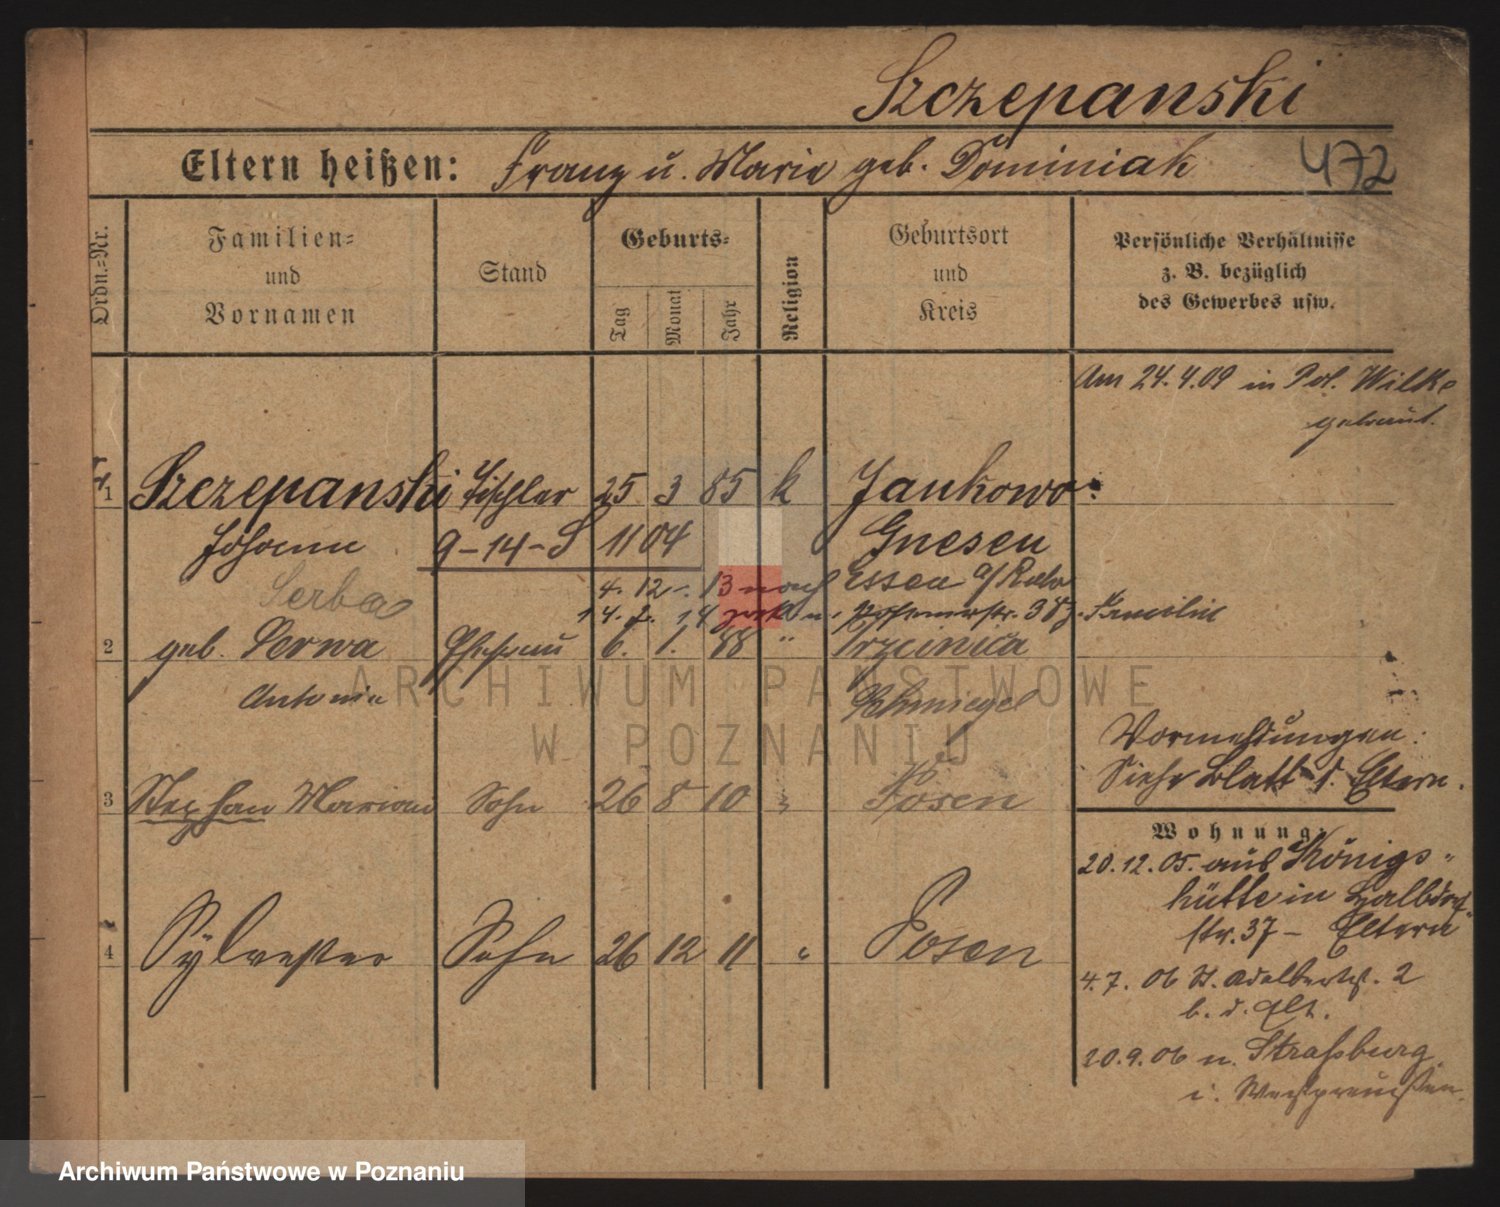 Szczepanski
Eltern heißen: Franz u. Marie geb. Dominiak 472
Ordn.-Nr.
Familien- und Vornamen
Stand
Geburts-
Tag
Monat
Jahr
Religion
Geburtsort und Kreis
Persönliche Verhältnisse z. B. bezüglich des Gewerbes usw.
Am 24.4.09 in Pos. Wilke
getraut.
1 Szczepanski Tischler 25 3 85 k Jankowo
Johann 9-14-S 1104 Gnesen
Serba 4. 12. 13 nach Essen a/Ruhr
14. 2. 14 zurück n. 38 Familie
2 geb. Serwa Ehefrau 6. 1. 88 "
Antonie Schmiegel
Vormeldungen:
Siehe Blatt d. Eltern.
3 Stephan Marian Sohn 26 8 10 Posen
Wohnung:
20.12.05. aus Königs-
hütte in Halbdorf-
str. 37 - Eltern
4 Sylvester Sohn 26 12 11 " Posen
4. 7. 06 St. Adalbertst. 2
b. d. Elt.
20.9.06 n. Strassburg
i. Westpreussen.
ARCHIWUM PAŃSTWOWE
W POZNANIU
Archiwum Państwowe w Poznaniu